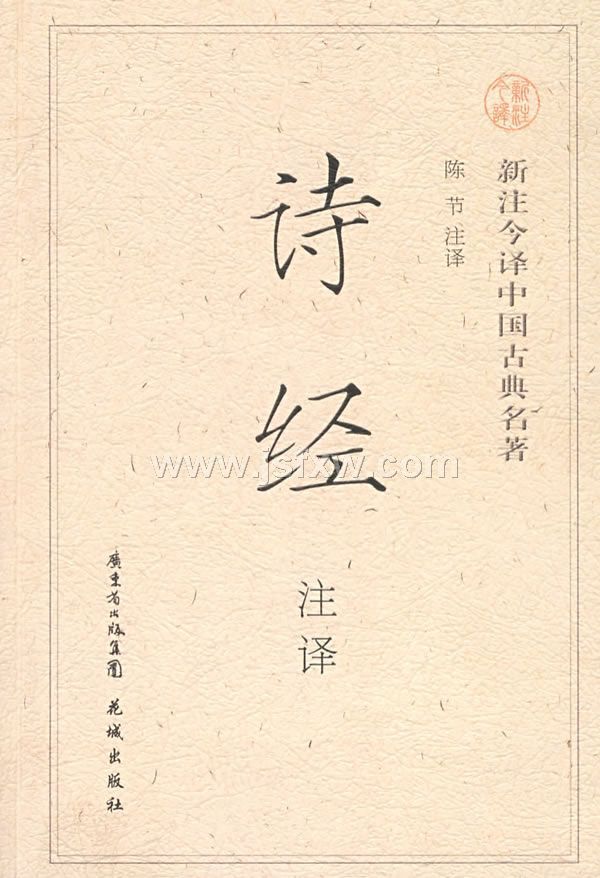 新注今译
新注今译中国古典名著
陈节 注译
诗经
注译
廣東省出版集團 花城出版社
www.jsfxw.com